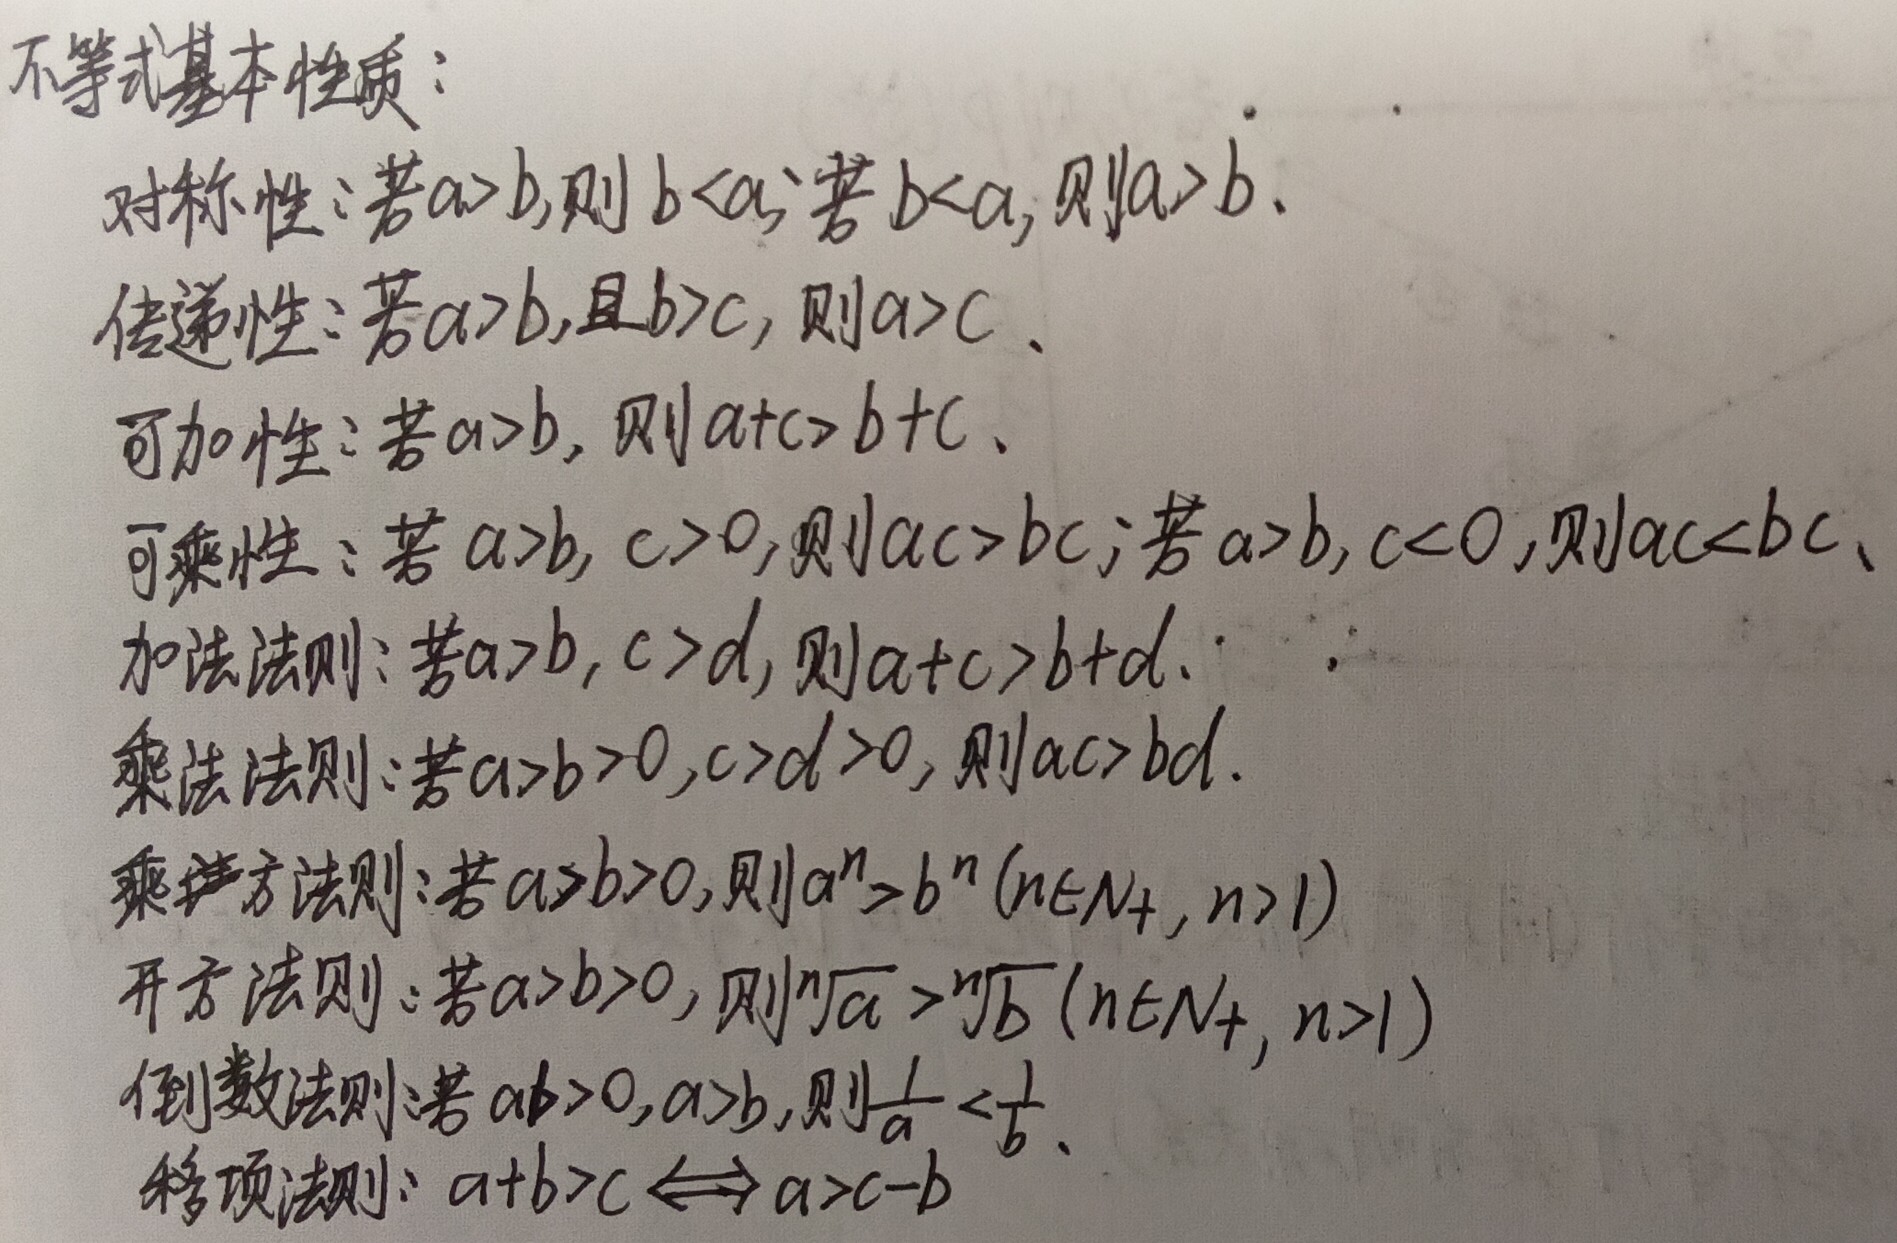 不等式基本性质：
对称性：若a>b,则b<a;若b<a,则a>b、
传递性：若a>b,且b>c,则a>c、
可加性：若a>b,则a+c>b+c、
可乘性：若a>b,c>0,则ac>bc;若a>b,c<0,则ac<bc、
加法法则：若a>b,c>d,则a+c>b+d、
乘法法则：若a>b>0,c>d>0,则ac>bd.
乘方法则：若a>b>0,则aⁿ>bⁿ(n∈N₊,n>1)
开方法则：若a>b>0,则ⁿ√a>ⁿ√b(n∈N₊,n>1)
倒数法则：若ab>0,a>b,则1/a<1/b、
移项法则：a+b>c⟺a>c-b